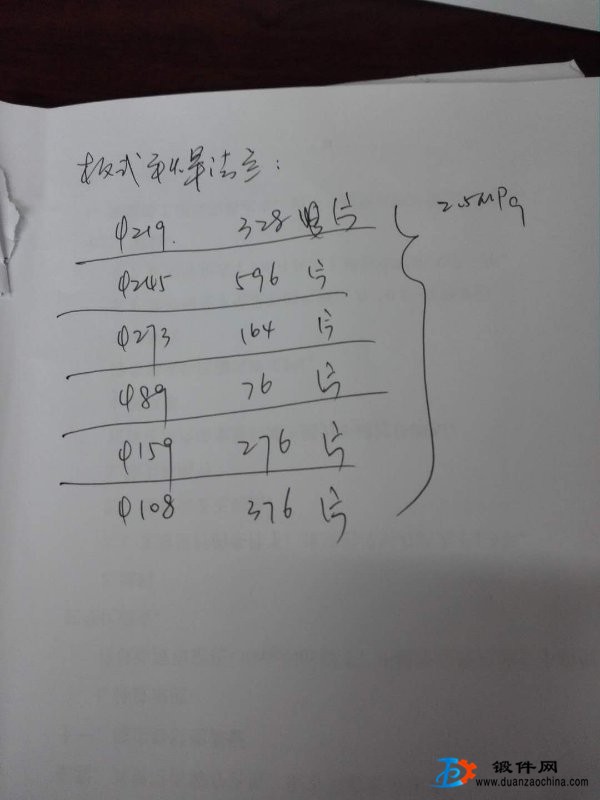 板式平焊法兰：
φ219. 328 片 2.5MPa
φ245 596 片
φ273 164 片
φ89 76 片
φ159 276 片
φ108 376 片
锻件网
www.duanzaochina.com